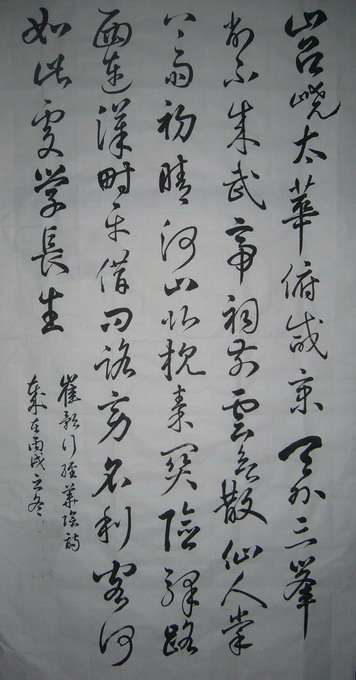 岧嶢太華俯咸京天外三峯
削不成武帝祠前雲欲散仙人掌
上雨初晴河山北枕秦関險驿路
西連漢畤平借問路旁名利客何
如此處学長生
崔颢行經華陰詩
歲在丙戌之冬